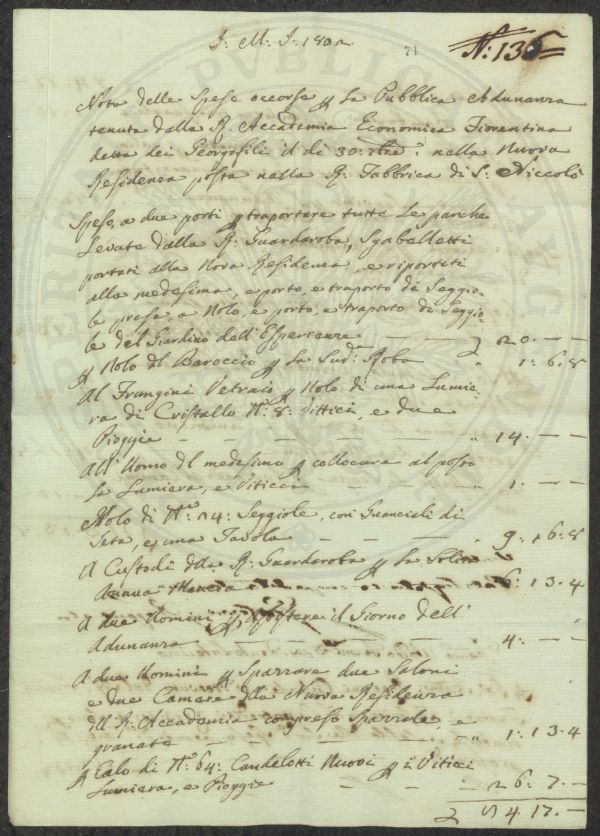 J. M. J. 1802
71
N: 136
Nota delle Spese occorse p La Pubblica Adunanza
tenuta dalla R. Accademia Economica Fiorentina
detta dei Georgofili il di 30: nella Nuova
Residenza posta nella R. Fabbrica di S. Niccolò
Spese, a due porti p traportare tutte Le panche
Levate dalla R: Guardaroba, Sgabelletti
portati alla Nova Residenza, e riportati
alla medesima, e porto, e traporto di Seggio-
le prese, a Nolo, e porto, e traporto di Seggio-
le del Giardino dell'Esperienze — — 20. — —
p Nolo dl Baroccio p La Sud: Roba " 1: 6. 8
Al Frangini Vetraio p Nolo di una Lumie-
ra di Cristallo N: 8: Vittici, e due
Pioggie — — — — — " 14. — —
All'Uomo dl medesimo p collocare al posto
La Lumiera, e Viticci — — — " 1. — —
Nolo di N: 24: Seggiole, con Guanciali di
Seta, e una Tavola — — — " 9: 6: 8
A Custodi dlla R: Guardaroba p La Solita
Mancia 6: 13. 4
A due Uomini p assistere il Giorno dell'
Adunanza — — — — " 4: — —
A due Uomini p Spazzare due Saloni
e due Camere dlla Nuova Residenza
dll R: Accademia compreso Spazzole, e
granate — — — — " 1: 13. 4
p Calo di N: 64: Candelotti Nuovi p i Vitici
Lumiera, e Pioggie — — 26: 7. —
84. 17. —